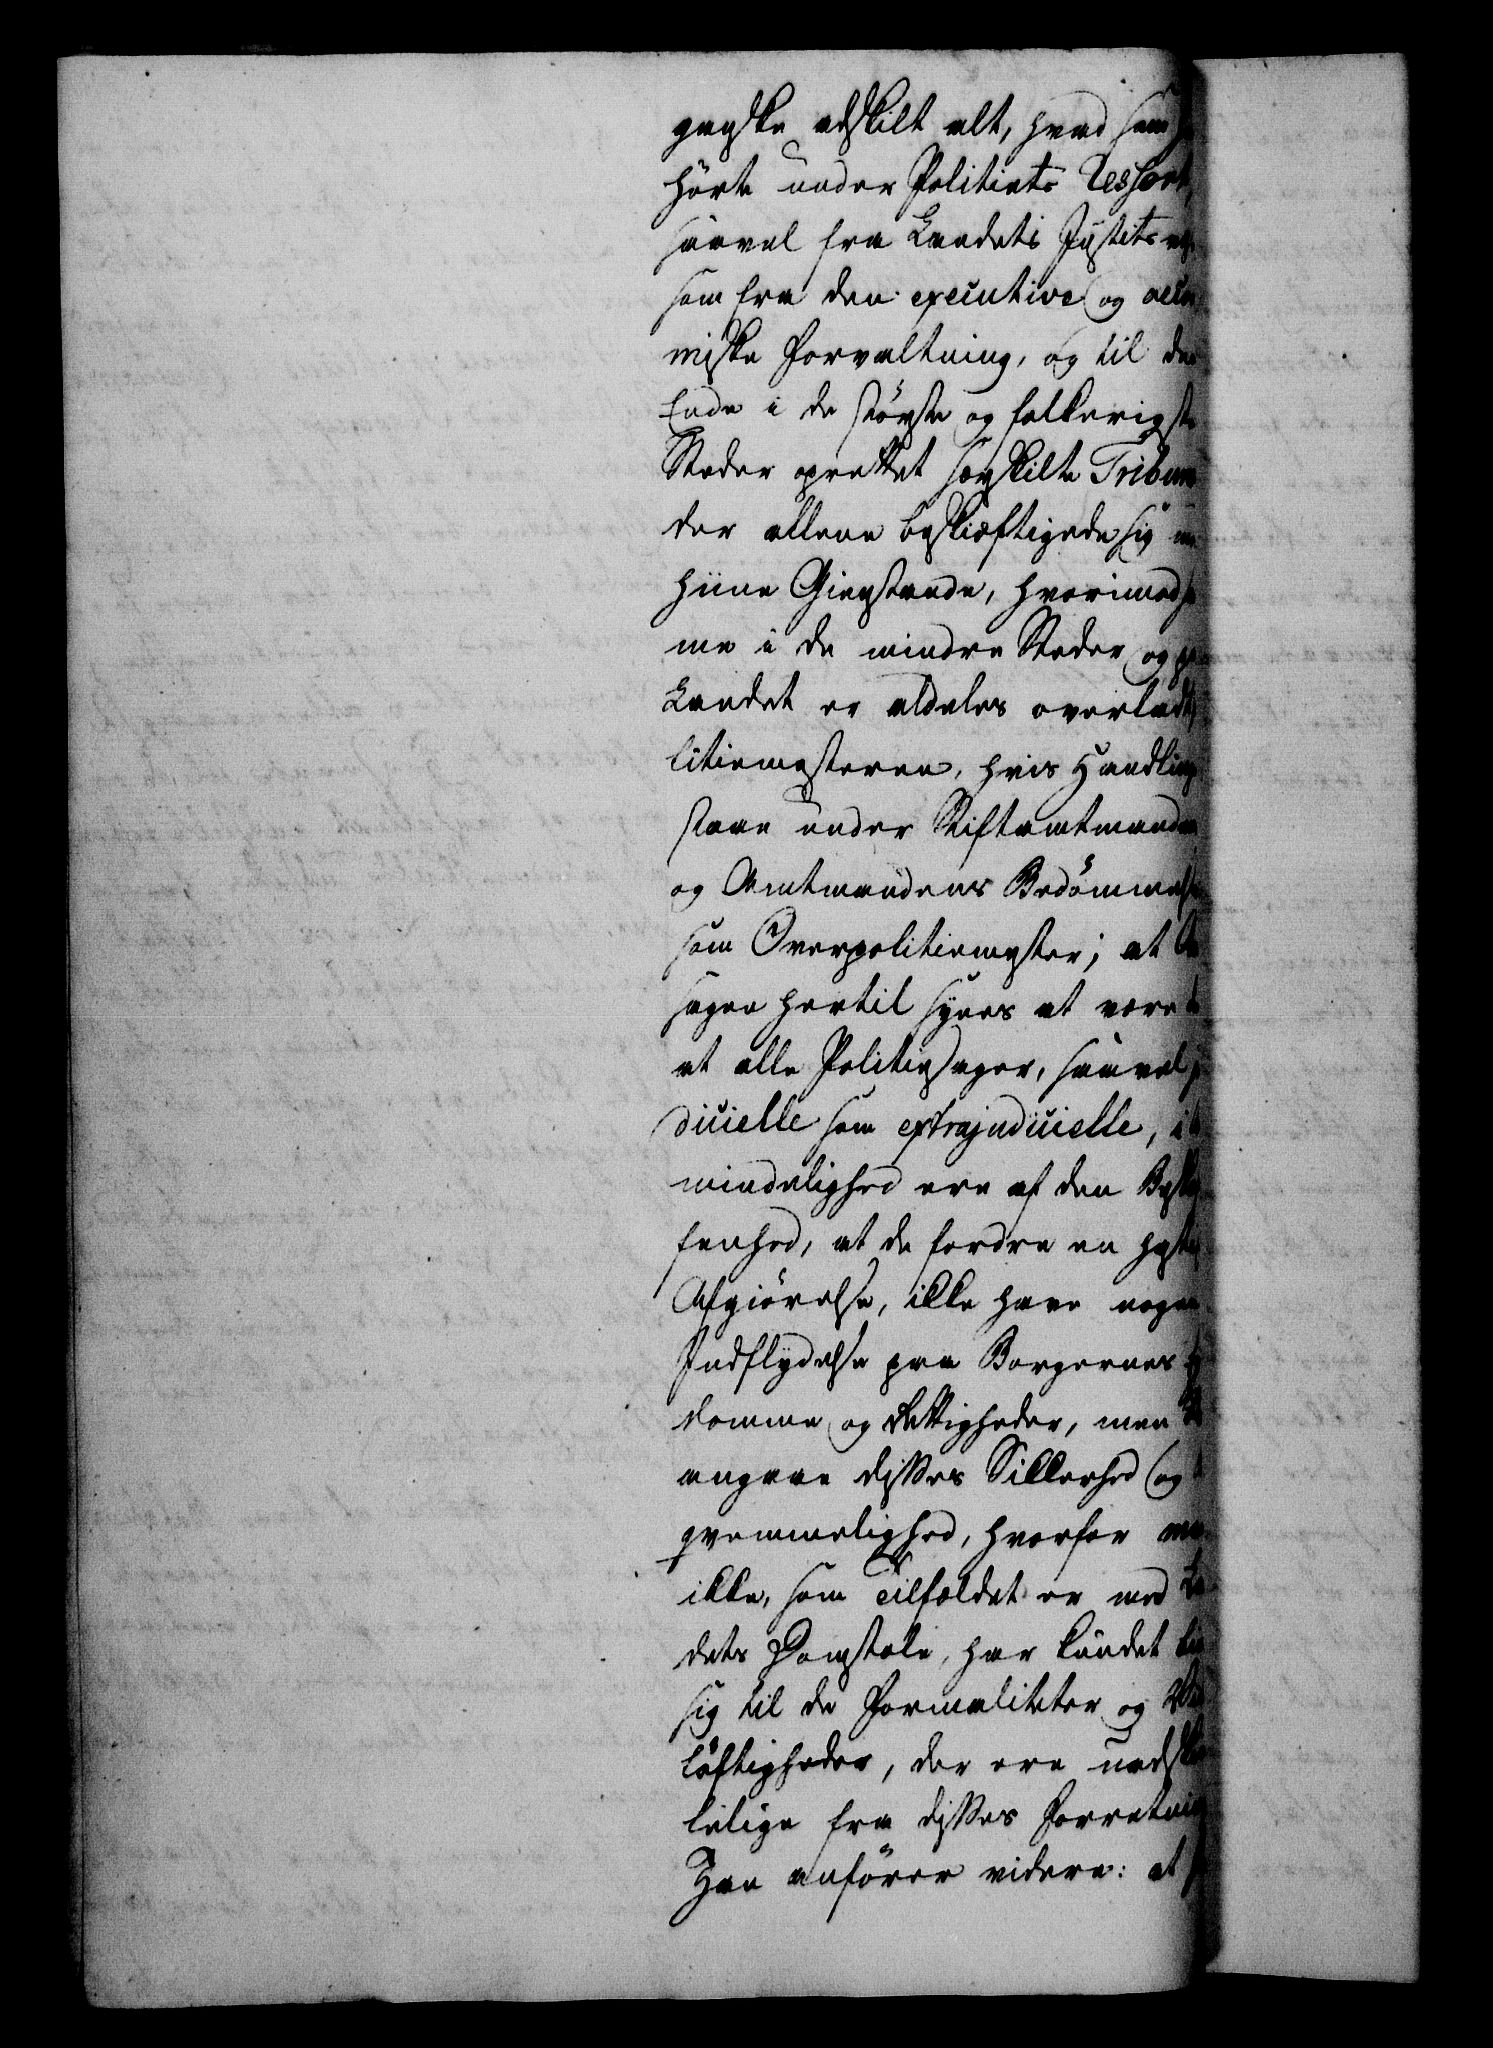 ganske adskilt alt, hvad som
hørte under Politiets Ressort,
saavel fra Landets Justitsvæ
som fra den executive og oeko
miske Forvaltning, og til den
Ende i de største og folkerigste
Stæder oprettet særskilte Tribun
der allene beskiæftigede sig me
hine Gienstande, hvorimod
me i de mindre Stæder og p
Landet er aldeles overladt
litiemesteren, hvis Handling
staae under Stiftamtmanden
og Amtmandens Bedømmelse
som Overpolitiemester; at
sagen hertil synes at være
at alle Politiesager, saavel j
dicielle som extrajudicielle, i
mindelighed ere af den Beska
fenhed, at de fordre en hastig
Afgiørelse, ikke have nogen
Indflydelse paa Borgernes
domme og Rettigheder, men
angaae disses Sikkerhed og
qvemmelighed, hvorfor ma
ikke, som Tilfældet er med La
dets Domstole, har kundet bi
sig til de Formaliteter og Vid
løftigheder, der ere uadskil
lelige fra disses Forretning
Han anfører videre: at